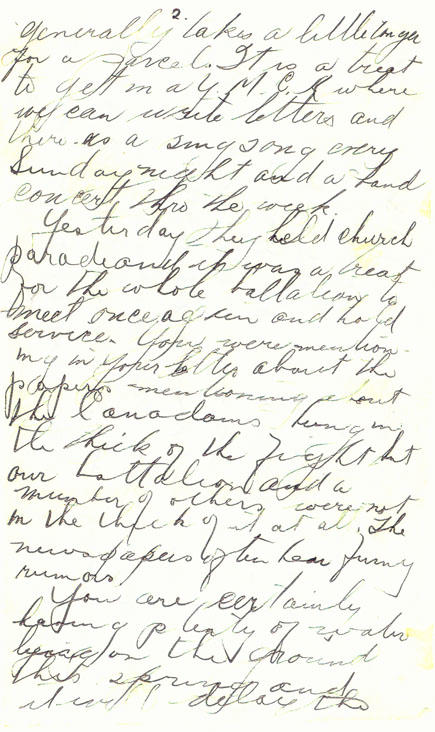 2.
generally takes a little longer
for a parcel. It is a treat
to get in a Y. M. C. A where
we can write letters and
there is a sing song every
Sunday night and a band
concert thro the week.
Yesterday they held church
parade and it was a treat
for the whole battalion to
meet once again and hold
service. You were mention-
ing in your letter about the
papers mentioning about
the Canadians being in
the thick of the fight but
our battalion and a
number of others were not
in the thick of it at al. The
newspapers often hear funny
rumors
You are certainly
having plenty of water
on the ground
this spring and
it will delay the